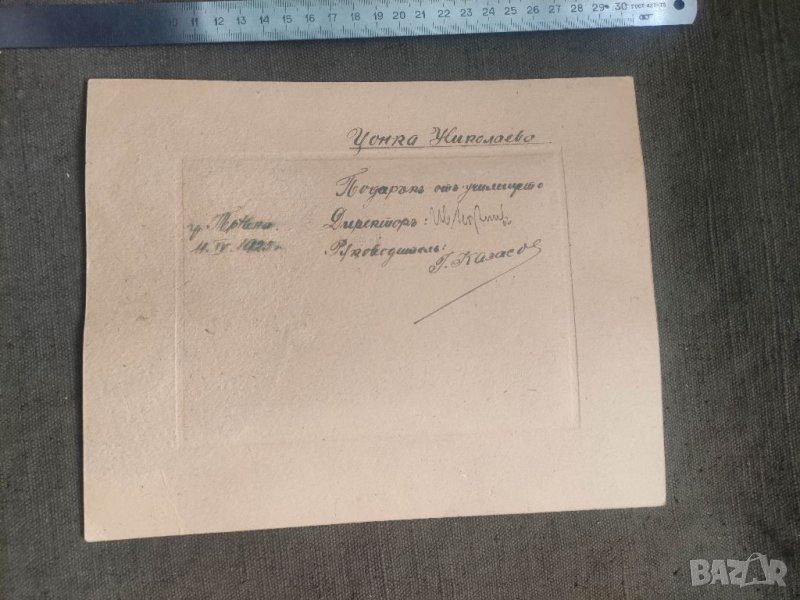 10 11 12 13 14 15 16 17 18 19 20 21 22 23 24 25 26 27 28 29 30 ГОСТ 427-75
Цонка Николаева
Подаръкъ отъ училището
Директоръ:
гр. Трѣвна
4. IV. 1925 г.
Рѫководитель:
Г. Казасов
BAZAR